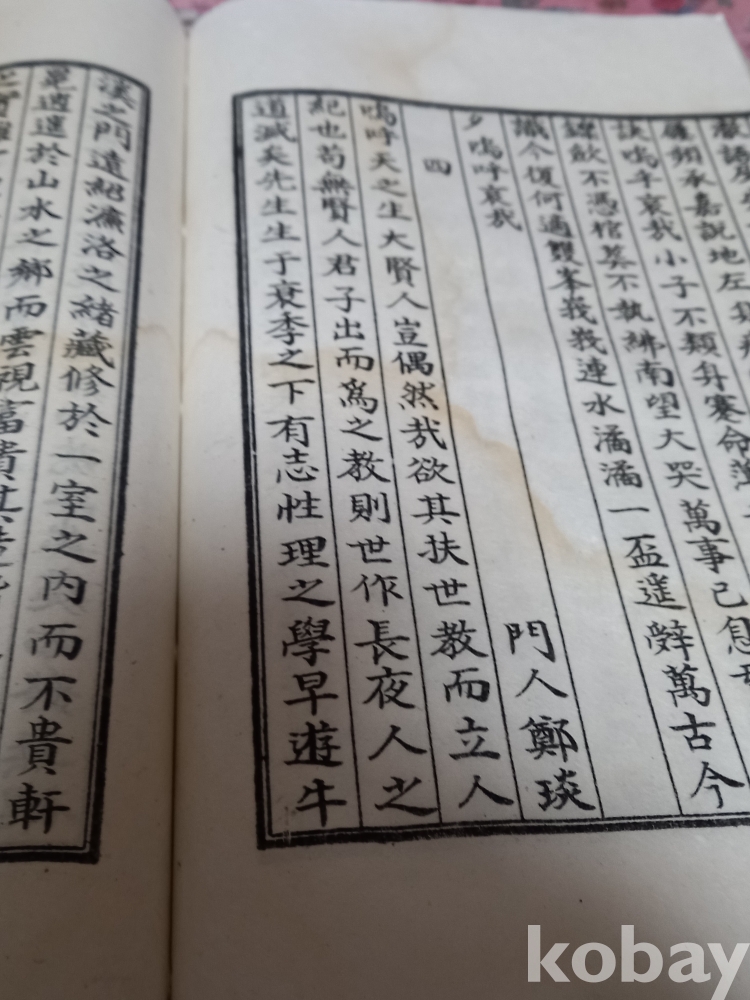 廉頻承嘉說地左
訣嗚乎哀我小子不類舛蹇命
歛不憑棺葬不執紼南望大哭萬事已
識今復何適雙峯峩峩連水潏潏一盃遥辤萬古今
夕嗚呼哀哉
四 門人鄭琰
嗚呼天之生大賢人豈偶然哉欲其扶世教而立人
紀也苟無賢人君子出而爲之教則世作長夜人之
道滅矣先生生于衰季之下有志性理之學早遊牛
溪之門遠紹濂洛之緒藏修於一室之內而不貴軒
冕逍遥於山水之鄕而雲視富貴其
kobay